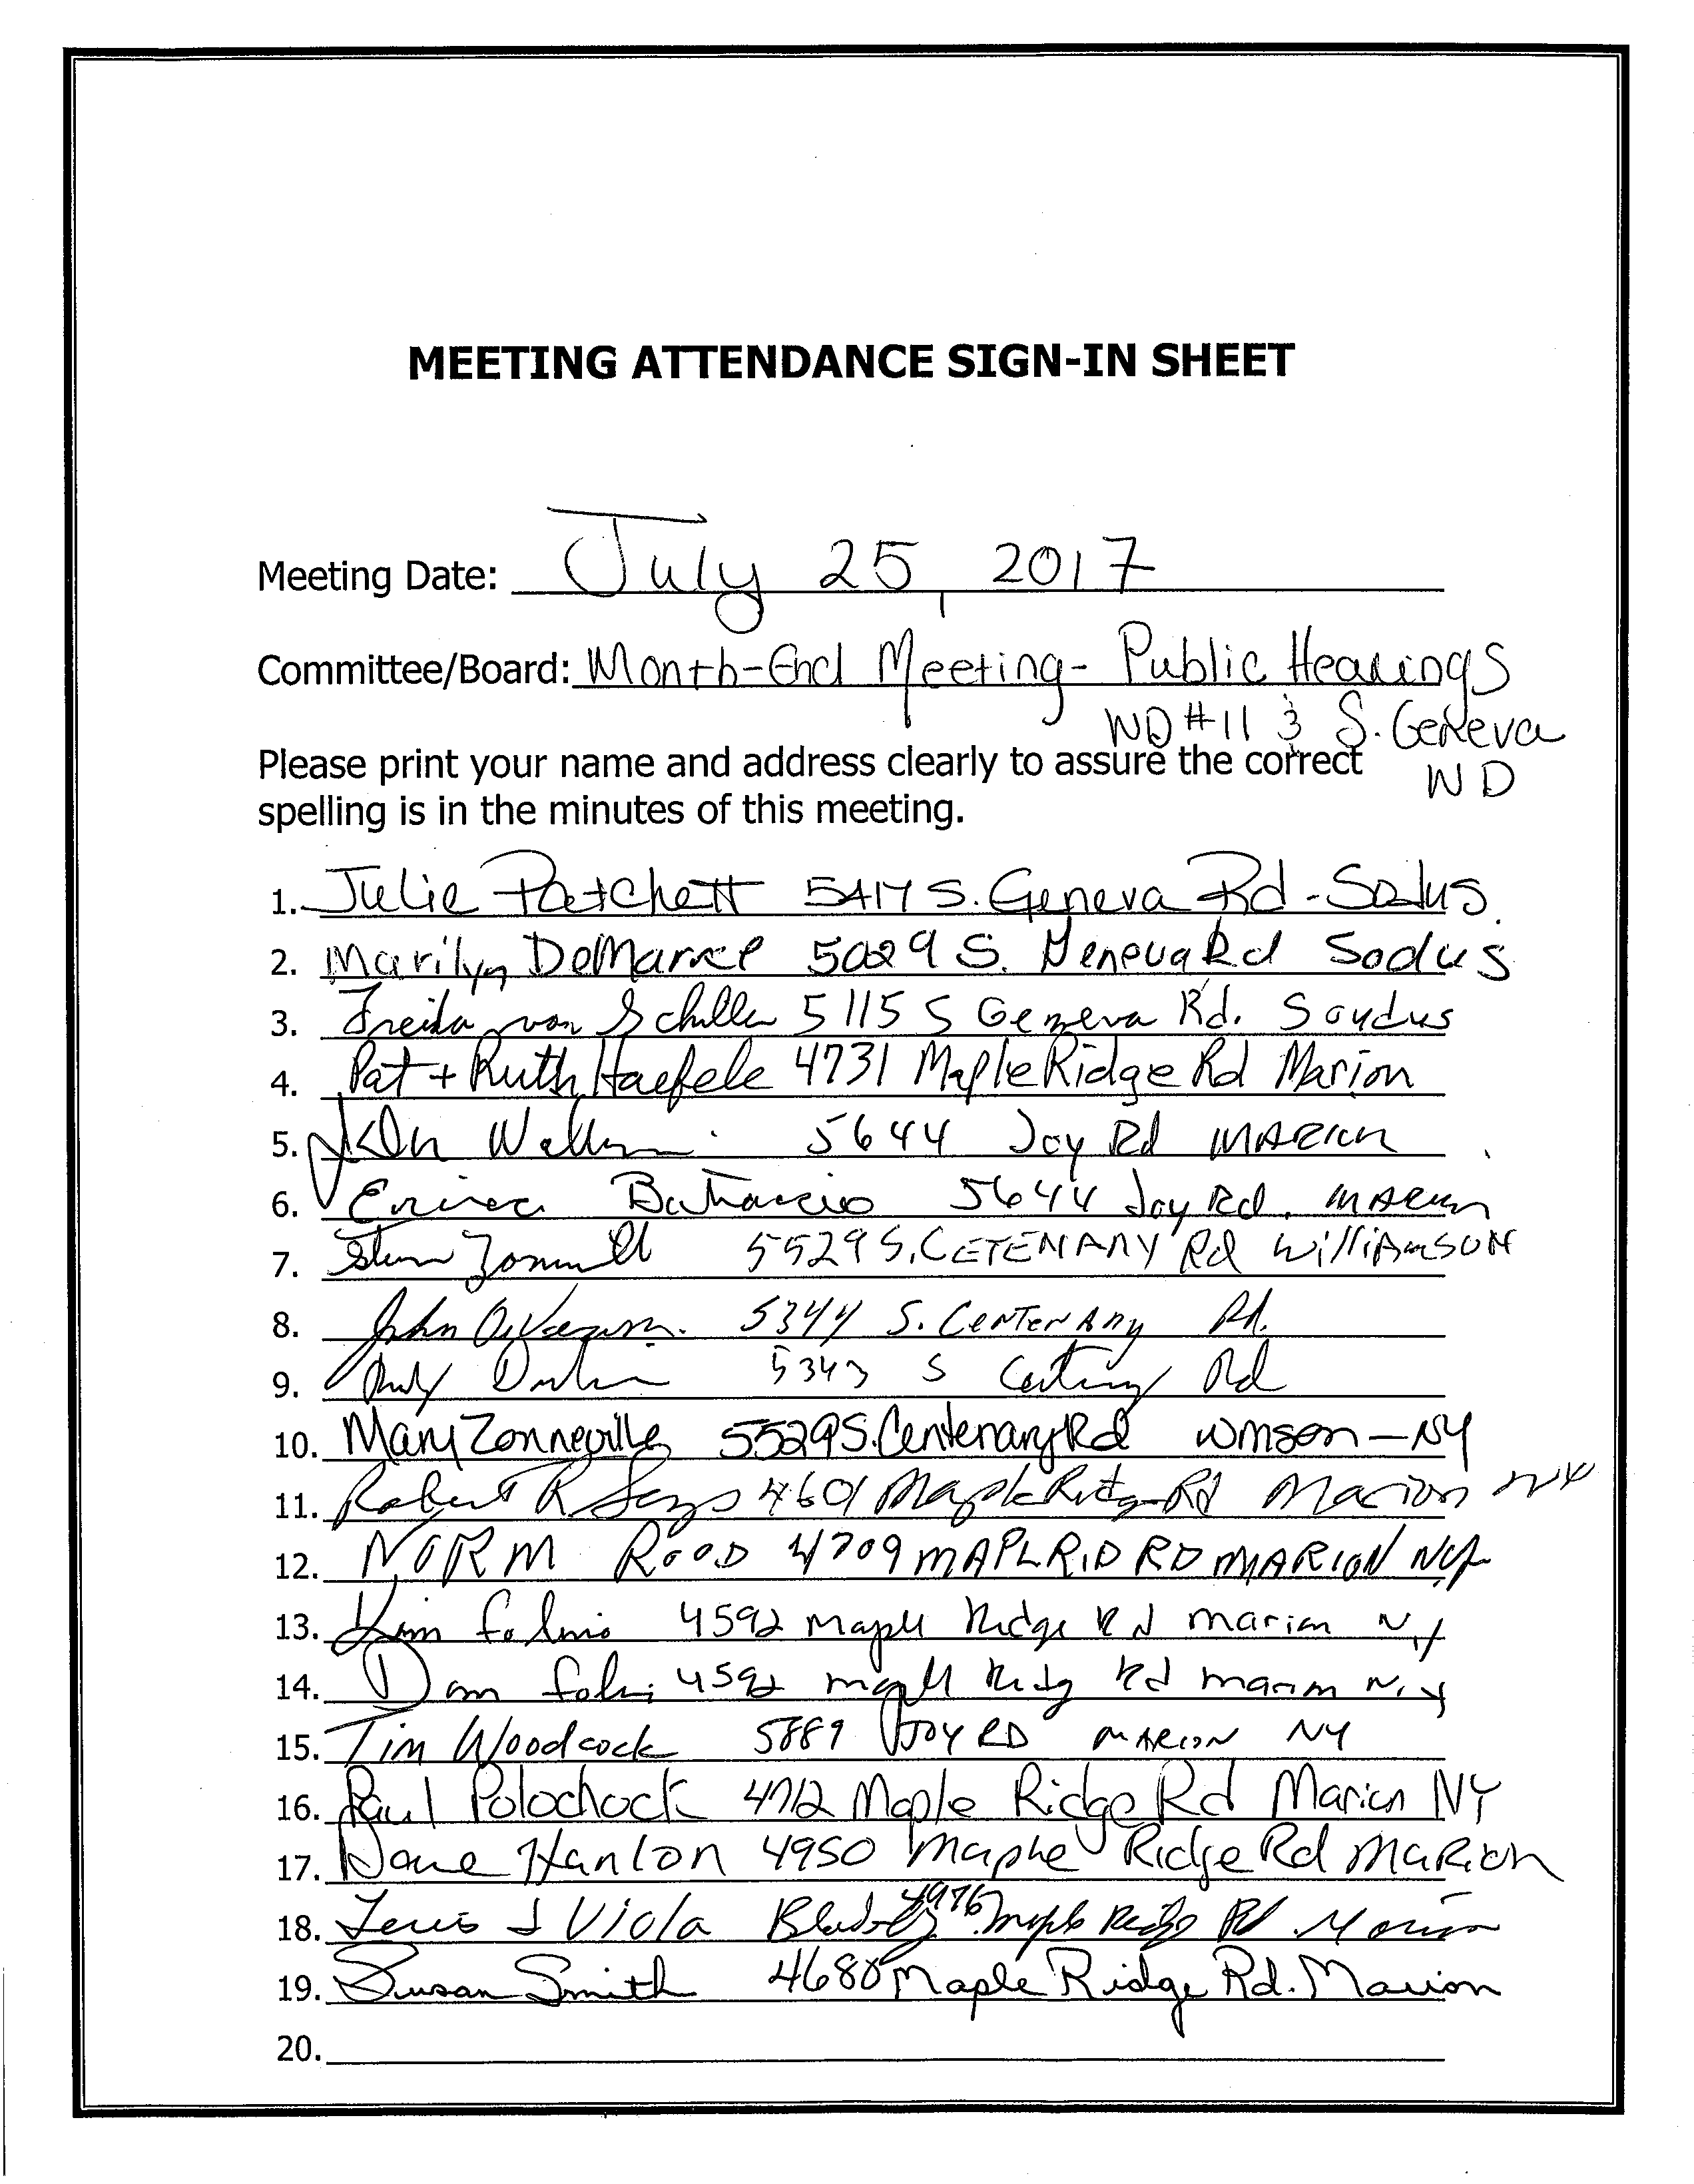 MEETING ATTENDANCE SIGN-IN SHEET
Meeting Date: July 25, 2017
Committee/Board: Month-End Meeting- Public Hearings
WD #11 & S. Geneva
WD
Please print your name and address clearly to assure the correct
spelling is in the minutes of this meeting.
1. Julie Patchett 5417 S. Geneva Rd - Sodus
2. Marilyn DeMarree 5029 S. Geneva Rd Sodus
3. Freida von Schiller 5115 S Geneva Rd. Soudus
4. Pat + Ruth Haefele 4731 Maple Ridge Rd Marion
5. 5644 Joy Rd MARION
6. 5644 Joy Rd. MARION
7. 5529 S. CETENARY Rd WilliAmSON
8. John 5344 S. CENTENARY Rd.
9. 5343 S Rd
10. Mary Zonneville 5529 S. Centenary Rd Wmson - NY
11. Robert R 4601 Maple Ridge Rd Marion NY
12. NORM ROOD 4709 MAPL RID RD MARION NY
13. Kim 4592 Maple Ridge Rd marion N.Y
14. 4592 maple Ridg Rd marion N.Y
15. Tim Woodcock 5889 JOY RD MARION NY
16. Paul Polochock 4712 Maple Ridge Rd Marion NY
17. Dave Hanlon 4950 Maple Ridge Rd MaRion
18. Lewis & Viola 4976 Maple Ridge Rd. Marion
19. Susan Smith 4680 Maple Ridge Rd. Marion
20.